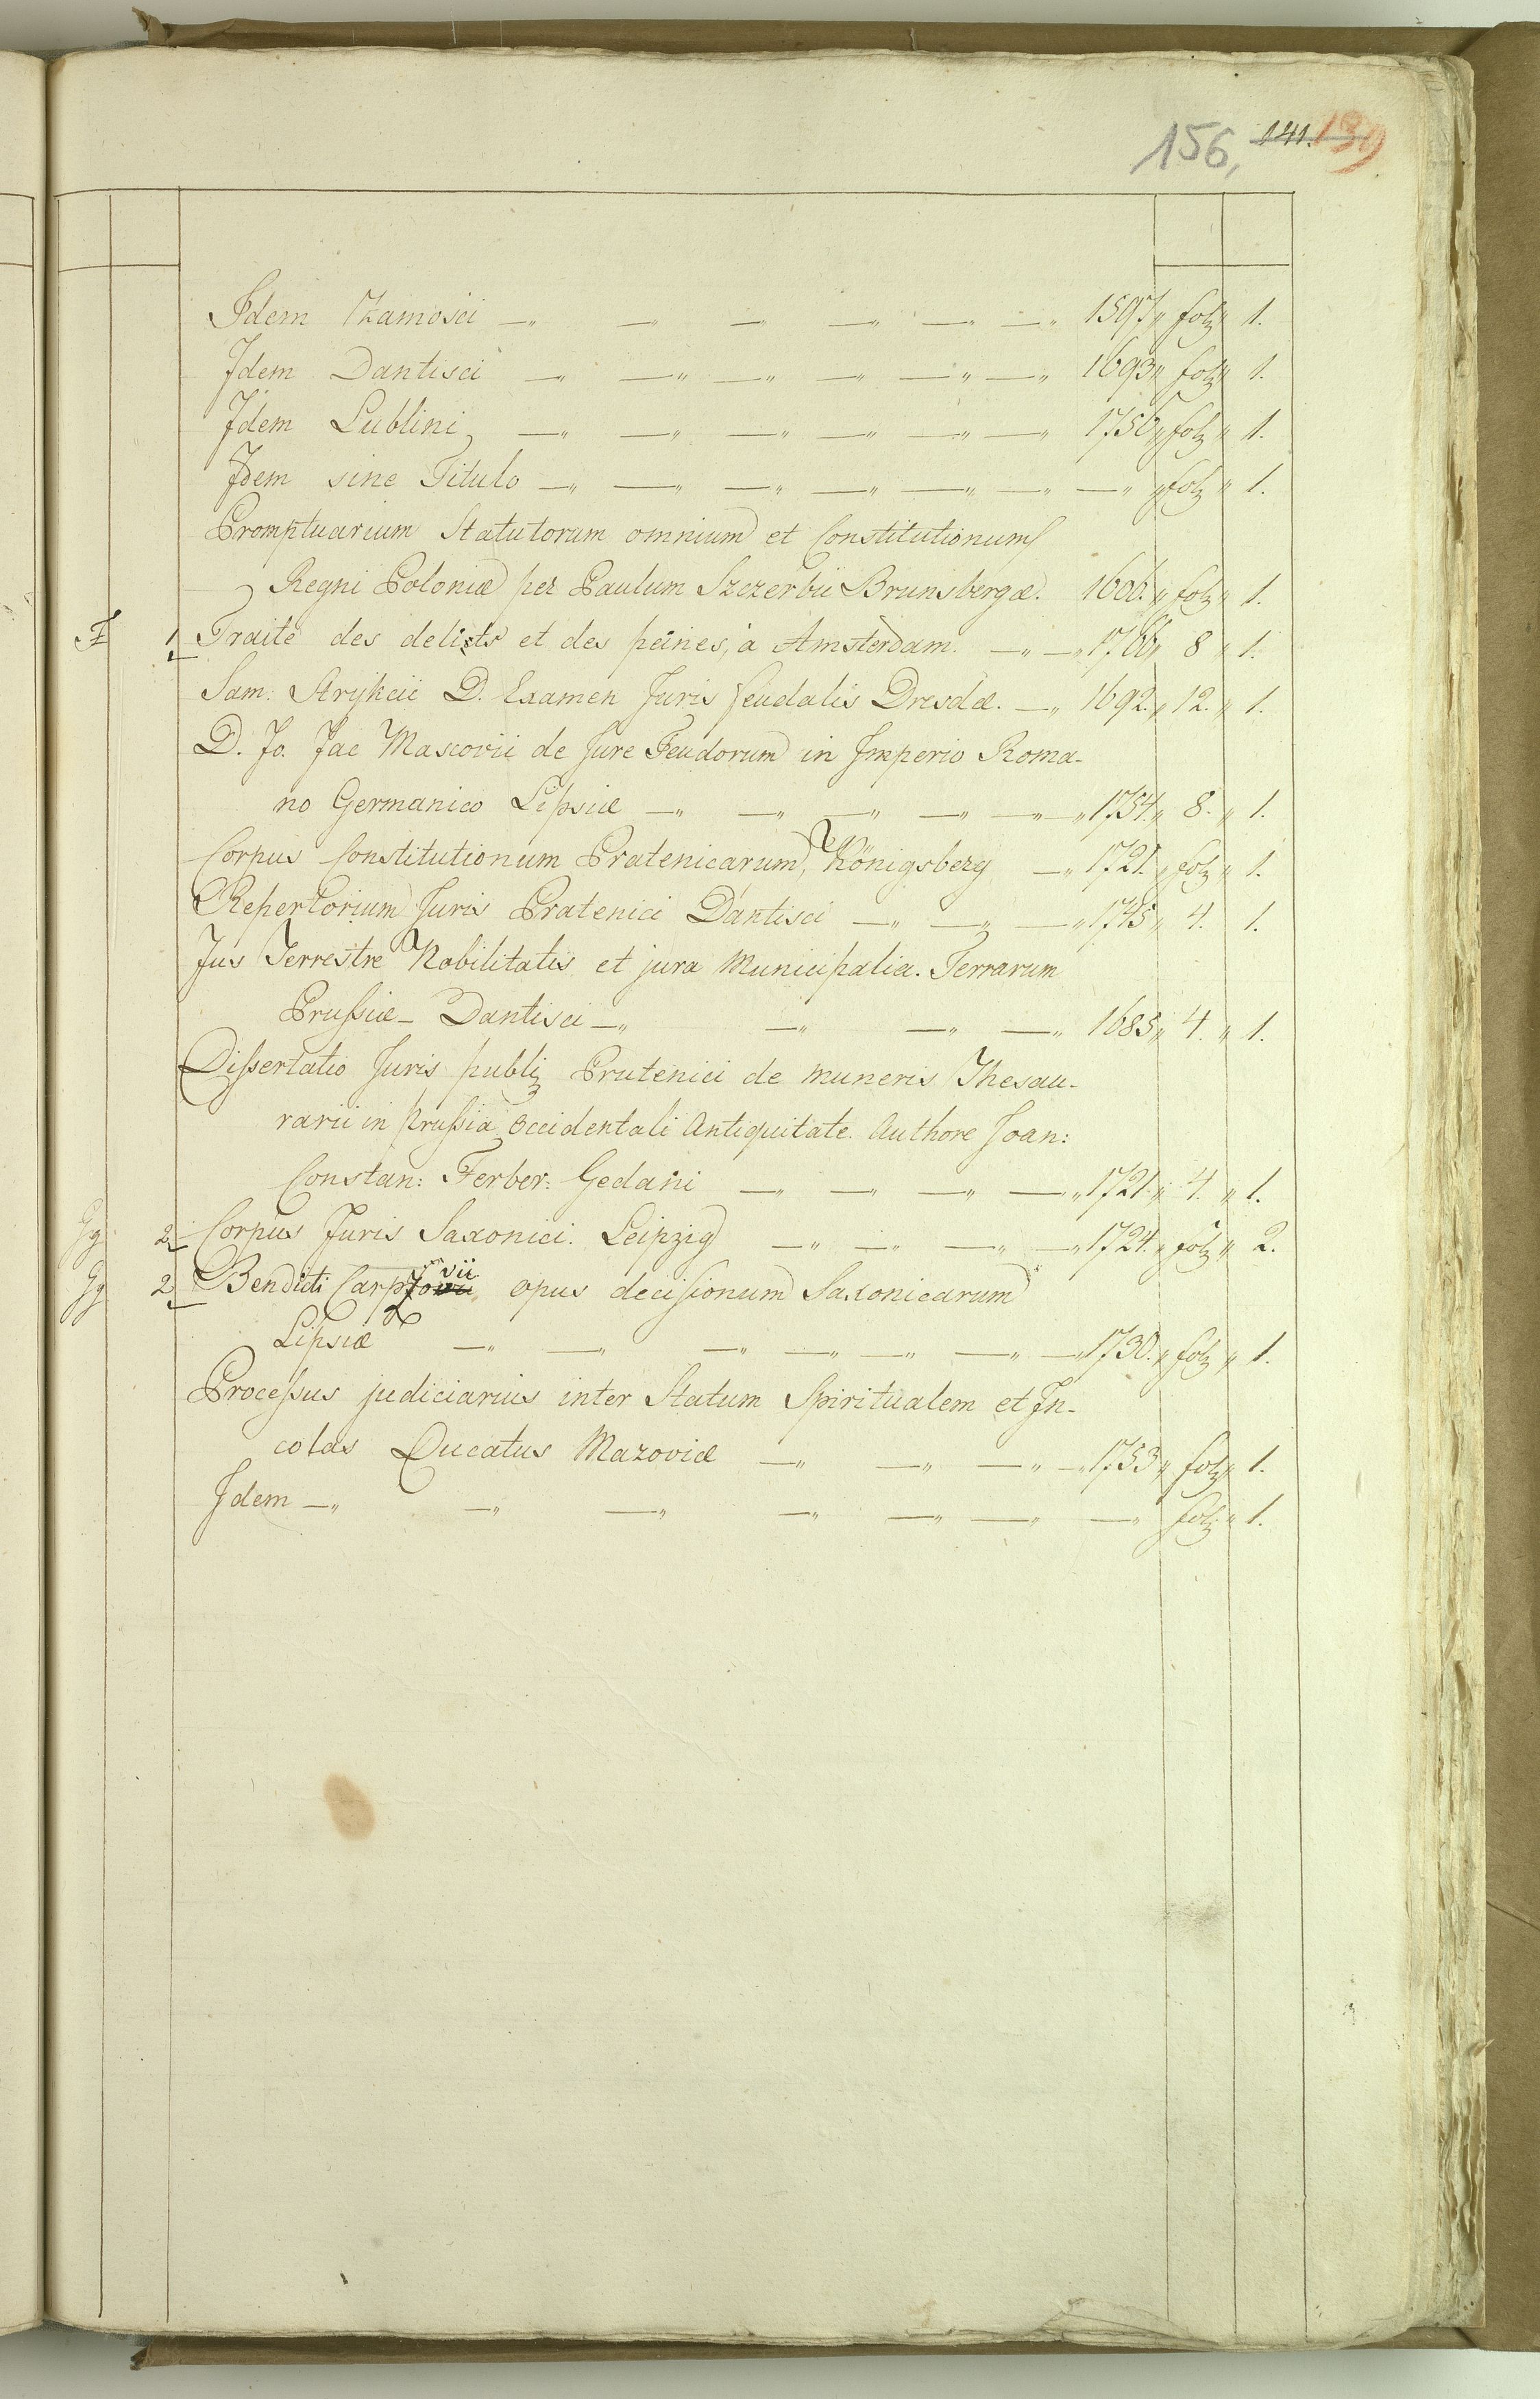 156, 141. 139
Idem Zamosci —„ —„ —„ —„ —„ —„ 1597„ fol„ 1.
Idem Dantisci —„ —„ —„ —„ —„ —„ 1693„ fol„ 1.
Idem Lublini —„ —„ —„ —„ —„ —„ 1756„ fol„ 1.
Idem sine Titulo —„ —„ —„ —„ —„ —„ —„ „fol„ 1.
Promptuarium Statutorum omnium et Constitutionum
Regni Poloniæ per Paulum Szczerbii Brunsbergæ. 1606.„ fol„ 1.
F 1 Traité des delicts et des peines, à Amsterdam. —„ —„ 1766„ 8„ 1.
Sam: Strykcii D. Examen Juris feudalis Dresdæ. —„ 1692.„ 12.„ 1.
D. Jo. Jac Mascovii de Jure Feudorum in Imperio Roma-
no Germanico Lipsiæ —„ —„ —„ —„ —„ —„ 1754.„ 8.„ 1.
Corpus Constitutionum Pratenicarum, Königsberg —„ 1721.„ fol„ 1.
Repertorium Juris Pratenici Dantisci —„ —„ —„ 1745„ 4. 1.
Jus Terrestre Nobilitatis et jura Municipalia. Terrarum
Prussiæ - Dantisci —„ —„ —„ —„ 1685„ 4.„ 1.
Dissertatio Juris publ Prutenici de muneris Thesau-
rarii in Prussia Occidentali Antiquitate. Authore Joan:
Constan: Ferber: Gedani —„ —„ —„ —„ 1721„ 4.„ 1.
Gg 2 Corpus Juris Saxonici. Leipzig —„ —„ —„ —„ 1724.„ fol„ 2.
Gg 2 Bendicti Carpzovii opus decisionum Saxonicarum
Lipsiæ —„ —„ —„ —„ —„ —„ —„ 1730.„ fol„ 1.
Processus judiciarius inter Statum Spiritualem et In-
colas Ducatus Mazoviæ —„ —„ —„ —„ 1753„ fol„ 1.
Idem —„ —„ —„ —„ —„ —„ —„ fol„ 1.